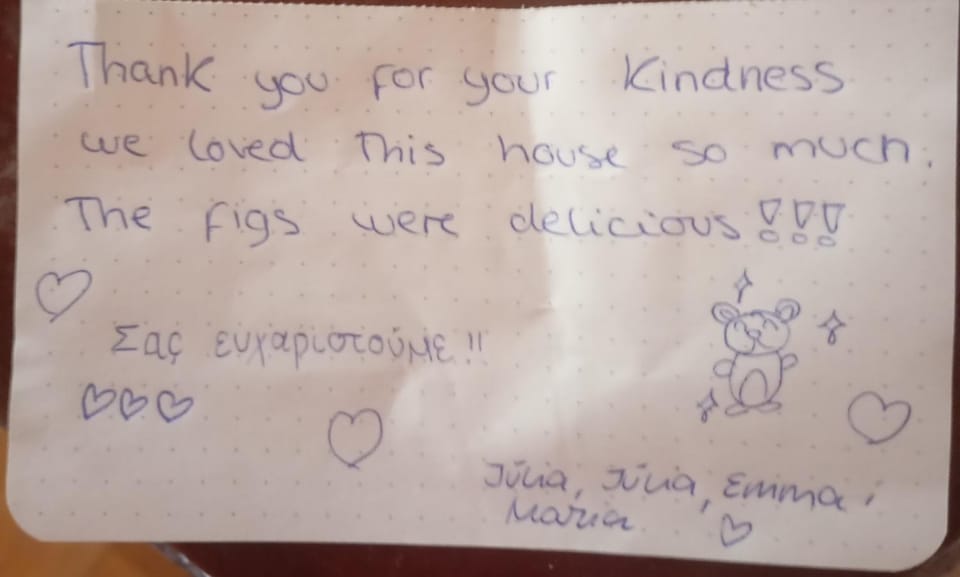 Thank you for your kindness
we loved this house so much.
The figs were delicious!!!
Σας ευχαριστούμε!!
Júlia, Júlia, Emma,
Maria